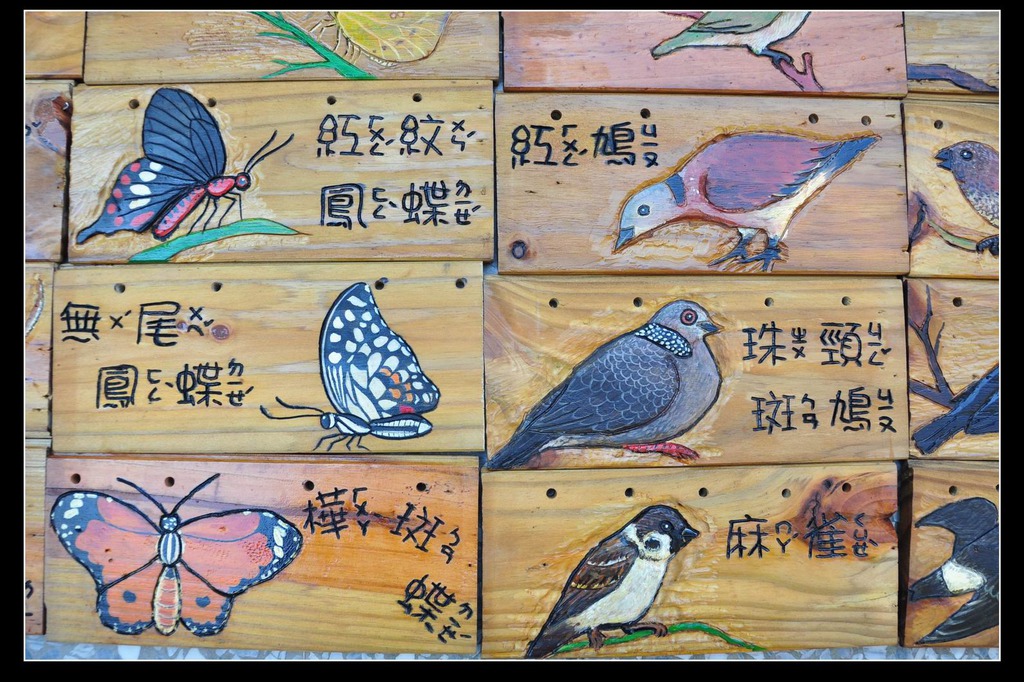 紅ㄏㄨㄥˊ紋ㄨㄣˊ
鳳ㄈㄥˋ蝶ㄉㄧㄝˊ
紅ㄏㄨㄥˊ鳩ㄐㄧㄡ
無ㄨˊ尾ㄨㄟˇ
鳳ㄈㄥˋ蝶ㄉㄧㄝˊ
珠ㄓㄨ頸ㄐㄧㄥˇ
斑ㄅㄢ鳩ㄐㄧㄡ
樺ㄏㄨㄚˋ斑ㄅㄢ
蝶ㄉㄧㄝˊ
麻ㄇㄚˊ雀ㄑㄩㄝˋ